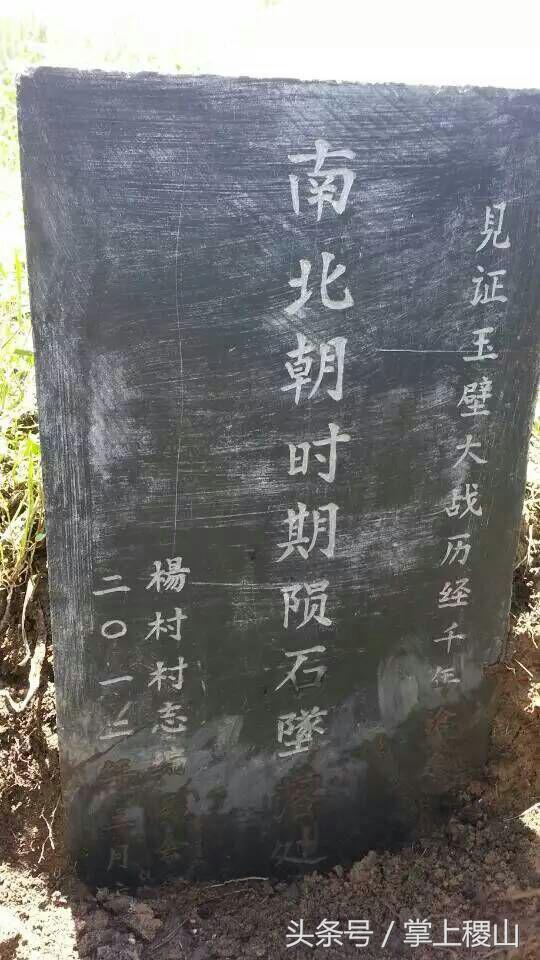 見证玉壁大战历经千年
南北朝时期陨石墜落处
楊村村志
二〇一三年三月
头条号 / 掌上稷山